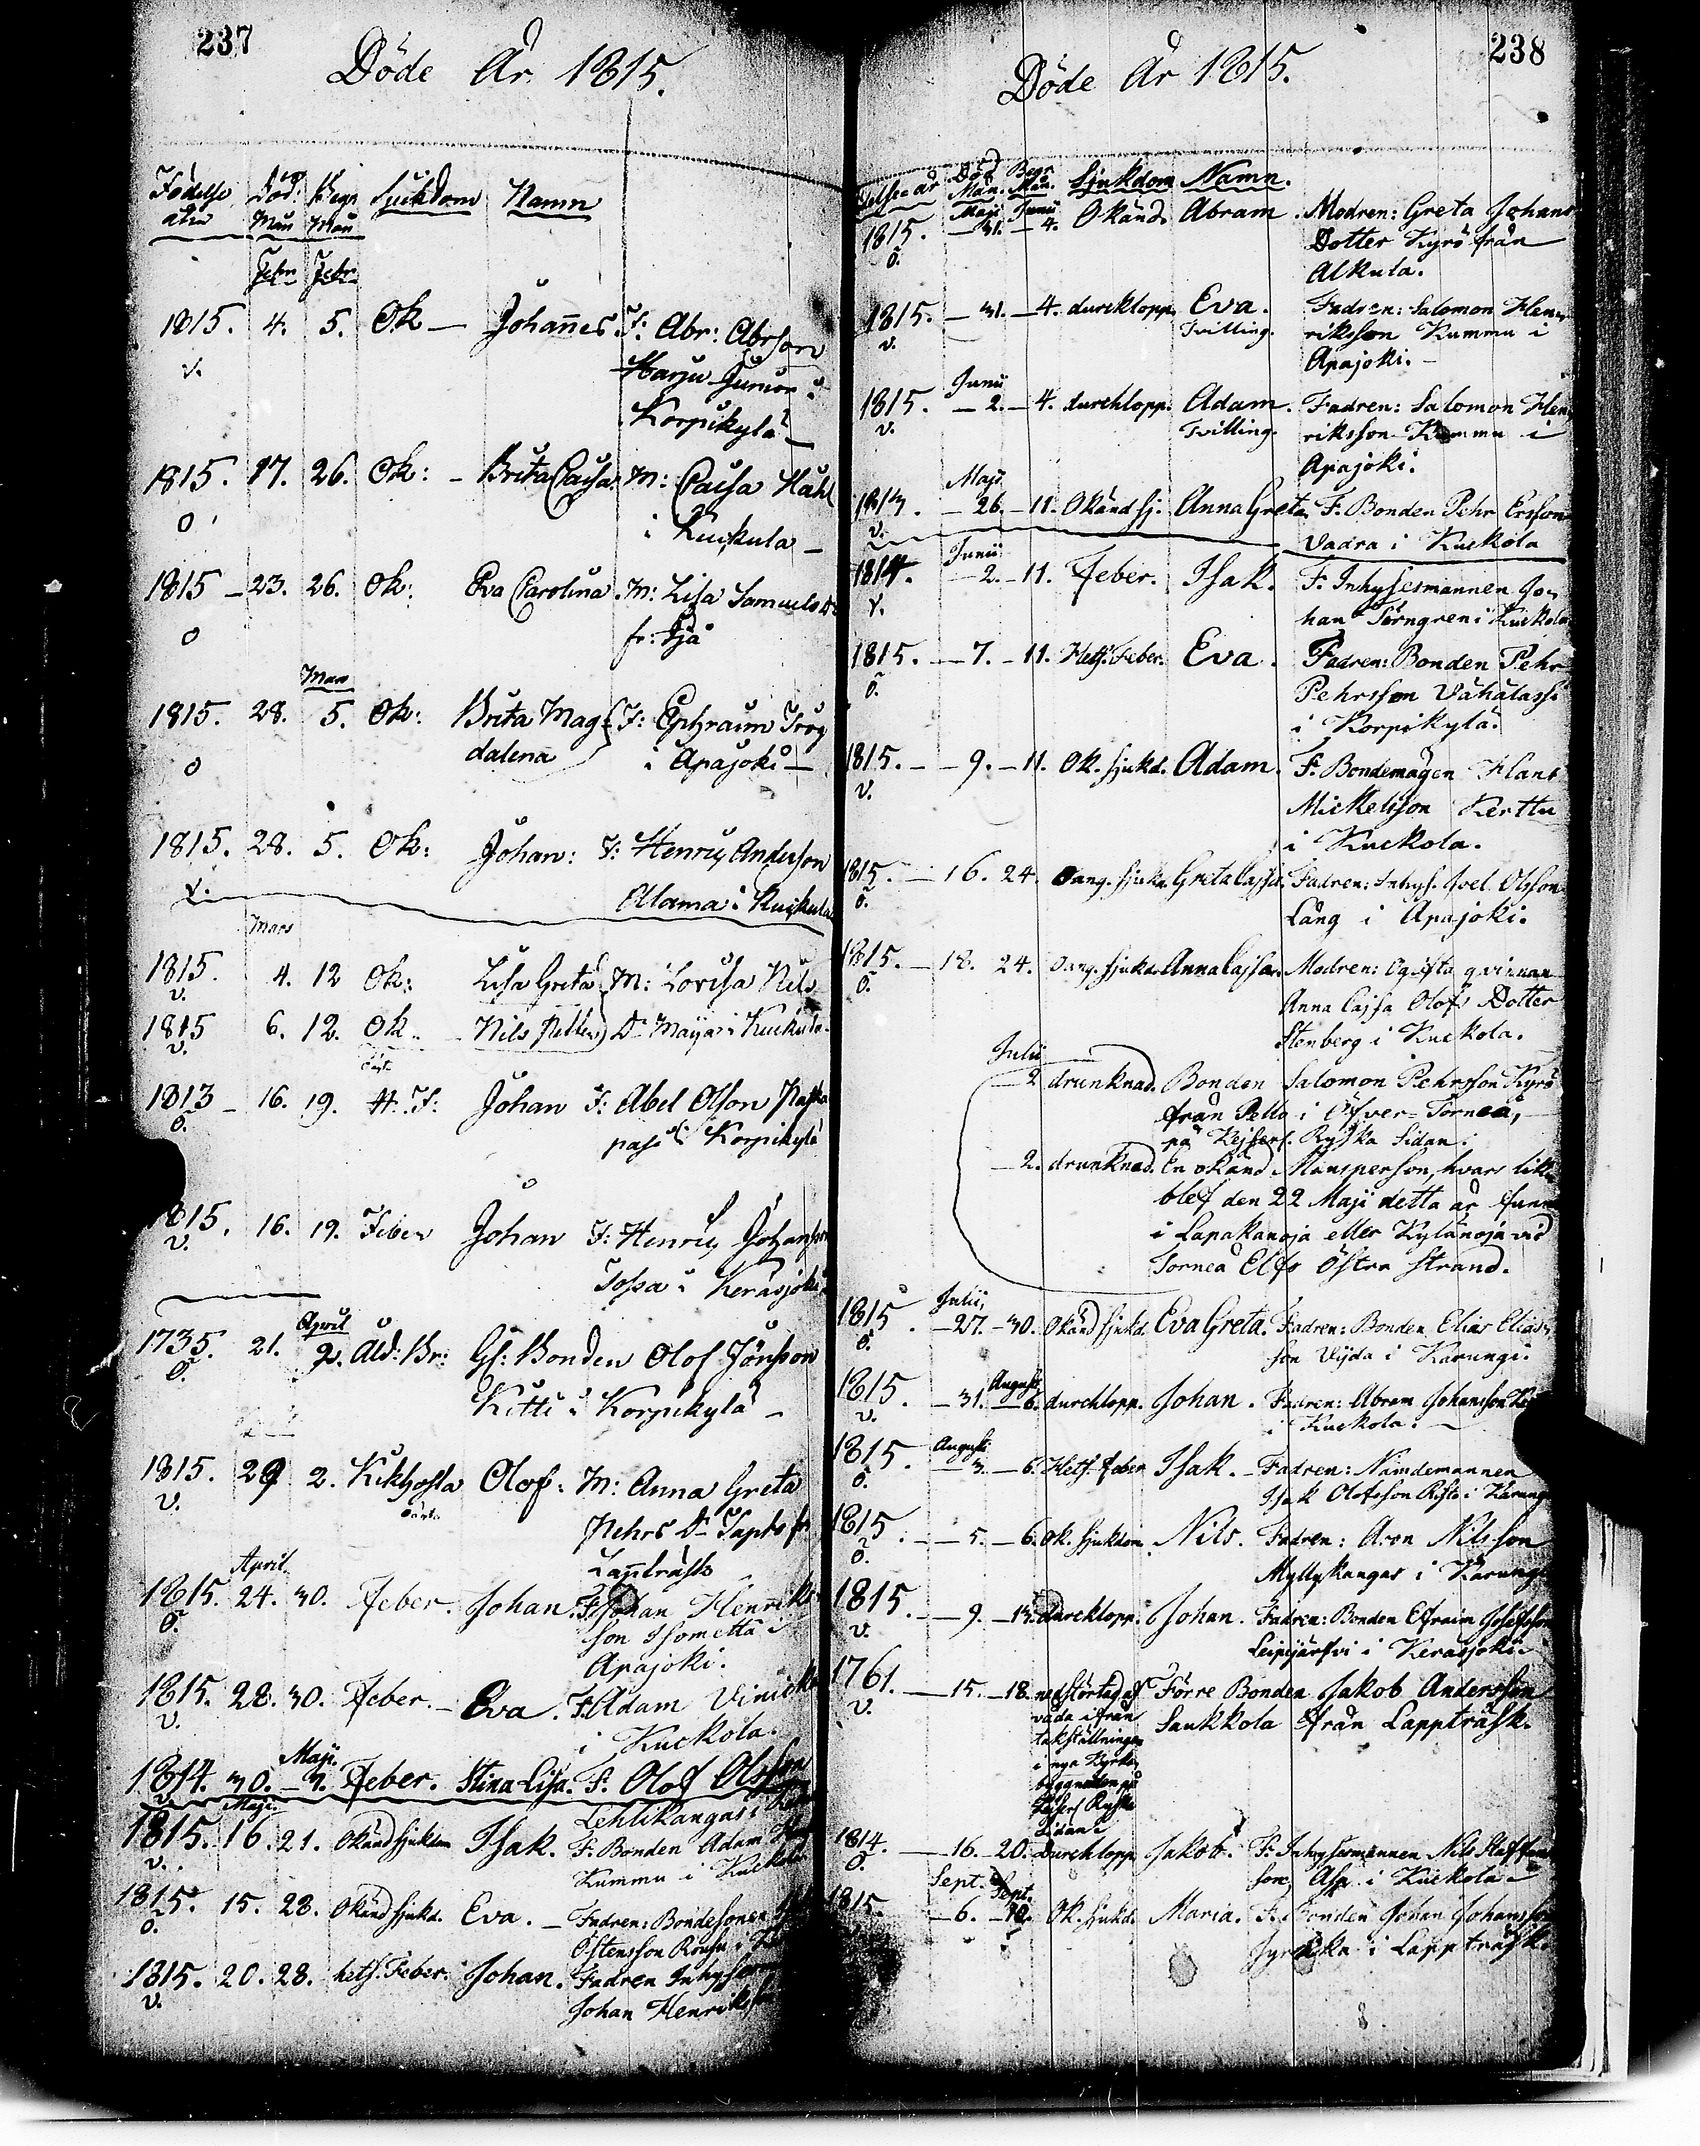 237
Döde År 1815.
Födelse Död: Begr Siukdom Namn
åhr Mån Mån
Febr Febr
1815. 4. 5. Ok — Johannes. F: Abr: Abrson
v. Harju Junior i
Korpikylä —
1815. 17. 26. Ok: – Brita Caisa. M: Caisa
o i Kuckula —
1815 – 23. 26. Ok: Eva Carolina. M: Lisa Samuels Dr
o fr:
Mars
1815. 28. 5. Ok: Brita Mag- F: Ephraim
o dalena i Apajoki —
1815. 28. 5. Ok: Johan: F: Henric Anderson
v. Alama i Kuckula
Mars
1815. 4. 12 Ok: Lisa Greta M: Lovisa Nils
v.
1815 6. 12. Ok. Nils Petter Dr Maija i Kuckula.
v.
1813 – 16. 19. H. F: Johan F: Abel Olson
ö. i Korpikylä
1815. 16. 19. Feber Johan F: Henric Johansson
v. i Kerasjoki
April
1735. 21. 2. Åld: Br: Gf: Bonden Olof Jönsson
ö. Kitti i Korpikylä –
1815. 29 2. Kikhosta Olof. M: Anna Greta
v. Pehrs Dr fr
Lappträsk
April.
1815. 24. 30. Feber. Johan. F. Johan Henriks
ö. son Isometta i
Apajoki.
1815. 28. 30. Feber. – Eva. F. Adam
v. i Kuckola.
Maji.
1814. 30. – 7. Feber. Stina Lisa. F. Olof Olsson
v. Maji. Lehtikangas i
1815. 16. 21. Okänd sjukdom Isak. F. Bonden Adam
v. Kummu i Kuckola
1815. 15. 28. Okänd sjukd. Eva. – Fadren: Bondesonen
ö. Östensson Rousu i
1815. 20. 28. hets. Feber. Johan. Fadren Inhyses
v. Johan Henriksson
238
Döde År 1815.
Död Begr
Mån. Mån. Sjukdom Namn.
Maji Junii
1815. – 31. – 4. Okänd. Abram. Modren: Greta Johans
ö. Dotter Kyrö från
Alkula.
1815. – 31. – 4. durchlopp. Eva. Fadren: Salomon Hen-
v. Tvilling. riksson Kummu i
Apajoki. –
Junii
1815. – 2. – 4. durchlopp. Adam. Fadren: Salomon Hen
v. Tvilling. riksson Kummu i
Apajoki.
Maji
1813. – 26. – 11. Okänd sj. Anna Greta F. Bonden Pehr Ersson
v. Vadra i Kuckola
Junii
1814. – 2. – 11. Feber. Isak. F. Inhysesmannen Jo-
v. han Törngren i Kuckola
1815. – 7. – 11. Hets. Feber. Eva. Fadren: Bonden Pehr
ö. Pehrsson Vähälassi
i Korpikylä.
1815. – 9. – 11. Ok. sjukd. Adam. F. Bondemågen Hans
v. Mickelsson Kerttu
i Kuckola.
1815. – 16. 24. sjukd. Greta Cajsa. Fadren: Inhys. Joel Olsson
ö. Lång i Apajoki.
1815. – 18. 24. sjukd. Anna Cajsa. Modren: Ogifta qvinnan
ö. Anna Cajsa Olofs Dotter
Stenberg i Kuckola.
Julii
– 2 drunknad. Bonden Salomon Pehrsson Kyrö
från Pello i Öfver-Torneå,
på Kejserl. Ryska Sidan.
– 2. drunknad. En okänd Mansperson, hvars lik
blef den 22 Maji detta år funn
i Lapakanoja eller Kylänoja vid
Torneå Elfs Östra strand.
Julii,
1815. – 27. – 30. Okänd sjukd. Eva Greta. Fadren: Bonden Elias Elias-
ö. son Vijda i Karungi.
Augusti
1815. – 31. – 6. durchlopp. Johan. Fadren: Abram Johansson
v. i Kuckola. –
Augusti
1815. – 3. – 6. Hets. feber Isak. – Fadren: Nämdemannen
ö. Isak Olofsson Risto i Karungi
1815. – 5. – 6. Ok. sjukdom. Nils. Fadren: Aron Nilsson
ö. Myllykangas i Karungi
1815. – 9. – 13. durchlopp. Johan. Fadren: Bonden Efraim Josefsson
v. Leipijärfvi i Kerasjoki.
1761. – 15. – 18. nedstörtad af Förre Bonden Jakob Andersson
v. våda ifrån Saukkola från Lappträsk.
takställningen
i nya Kyrko-
byggnaden på
Kejserl Ryska
Sidan.
1814. – 16. – 20. Durchlopp Jakob. F. Inhysesmannen Nils Staffans
ö. son, Asp i Kuckola –
Sept. Sept.
1815. – 6. – 10. Ok. sjukd. Maria. F. Bonden Johan Johansson
i Lappträsk.